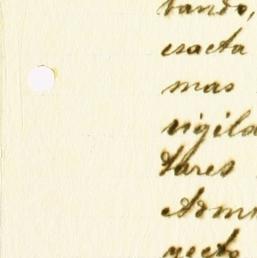 bando,
esacta
mas
vigila
tares
Admi
yecto